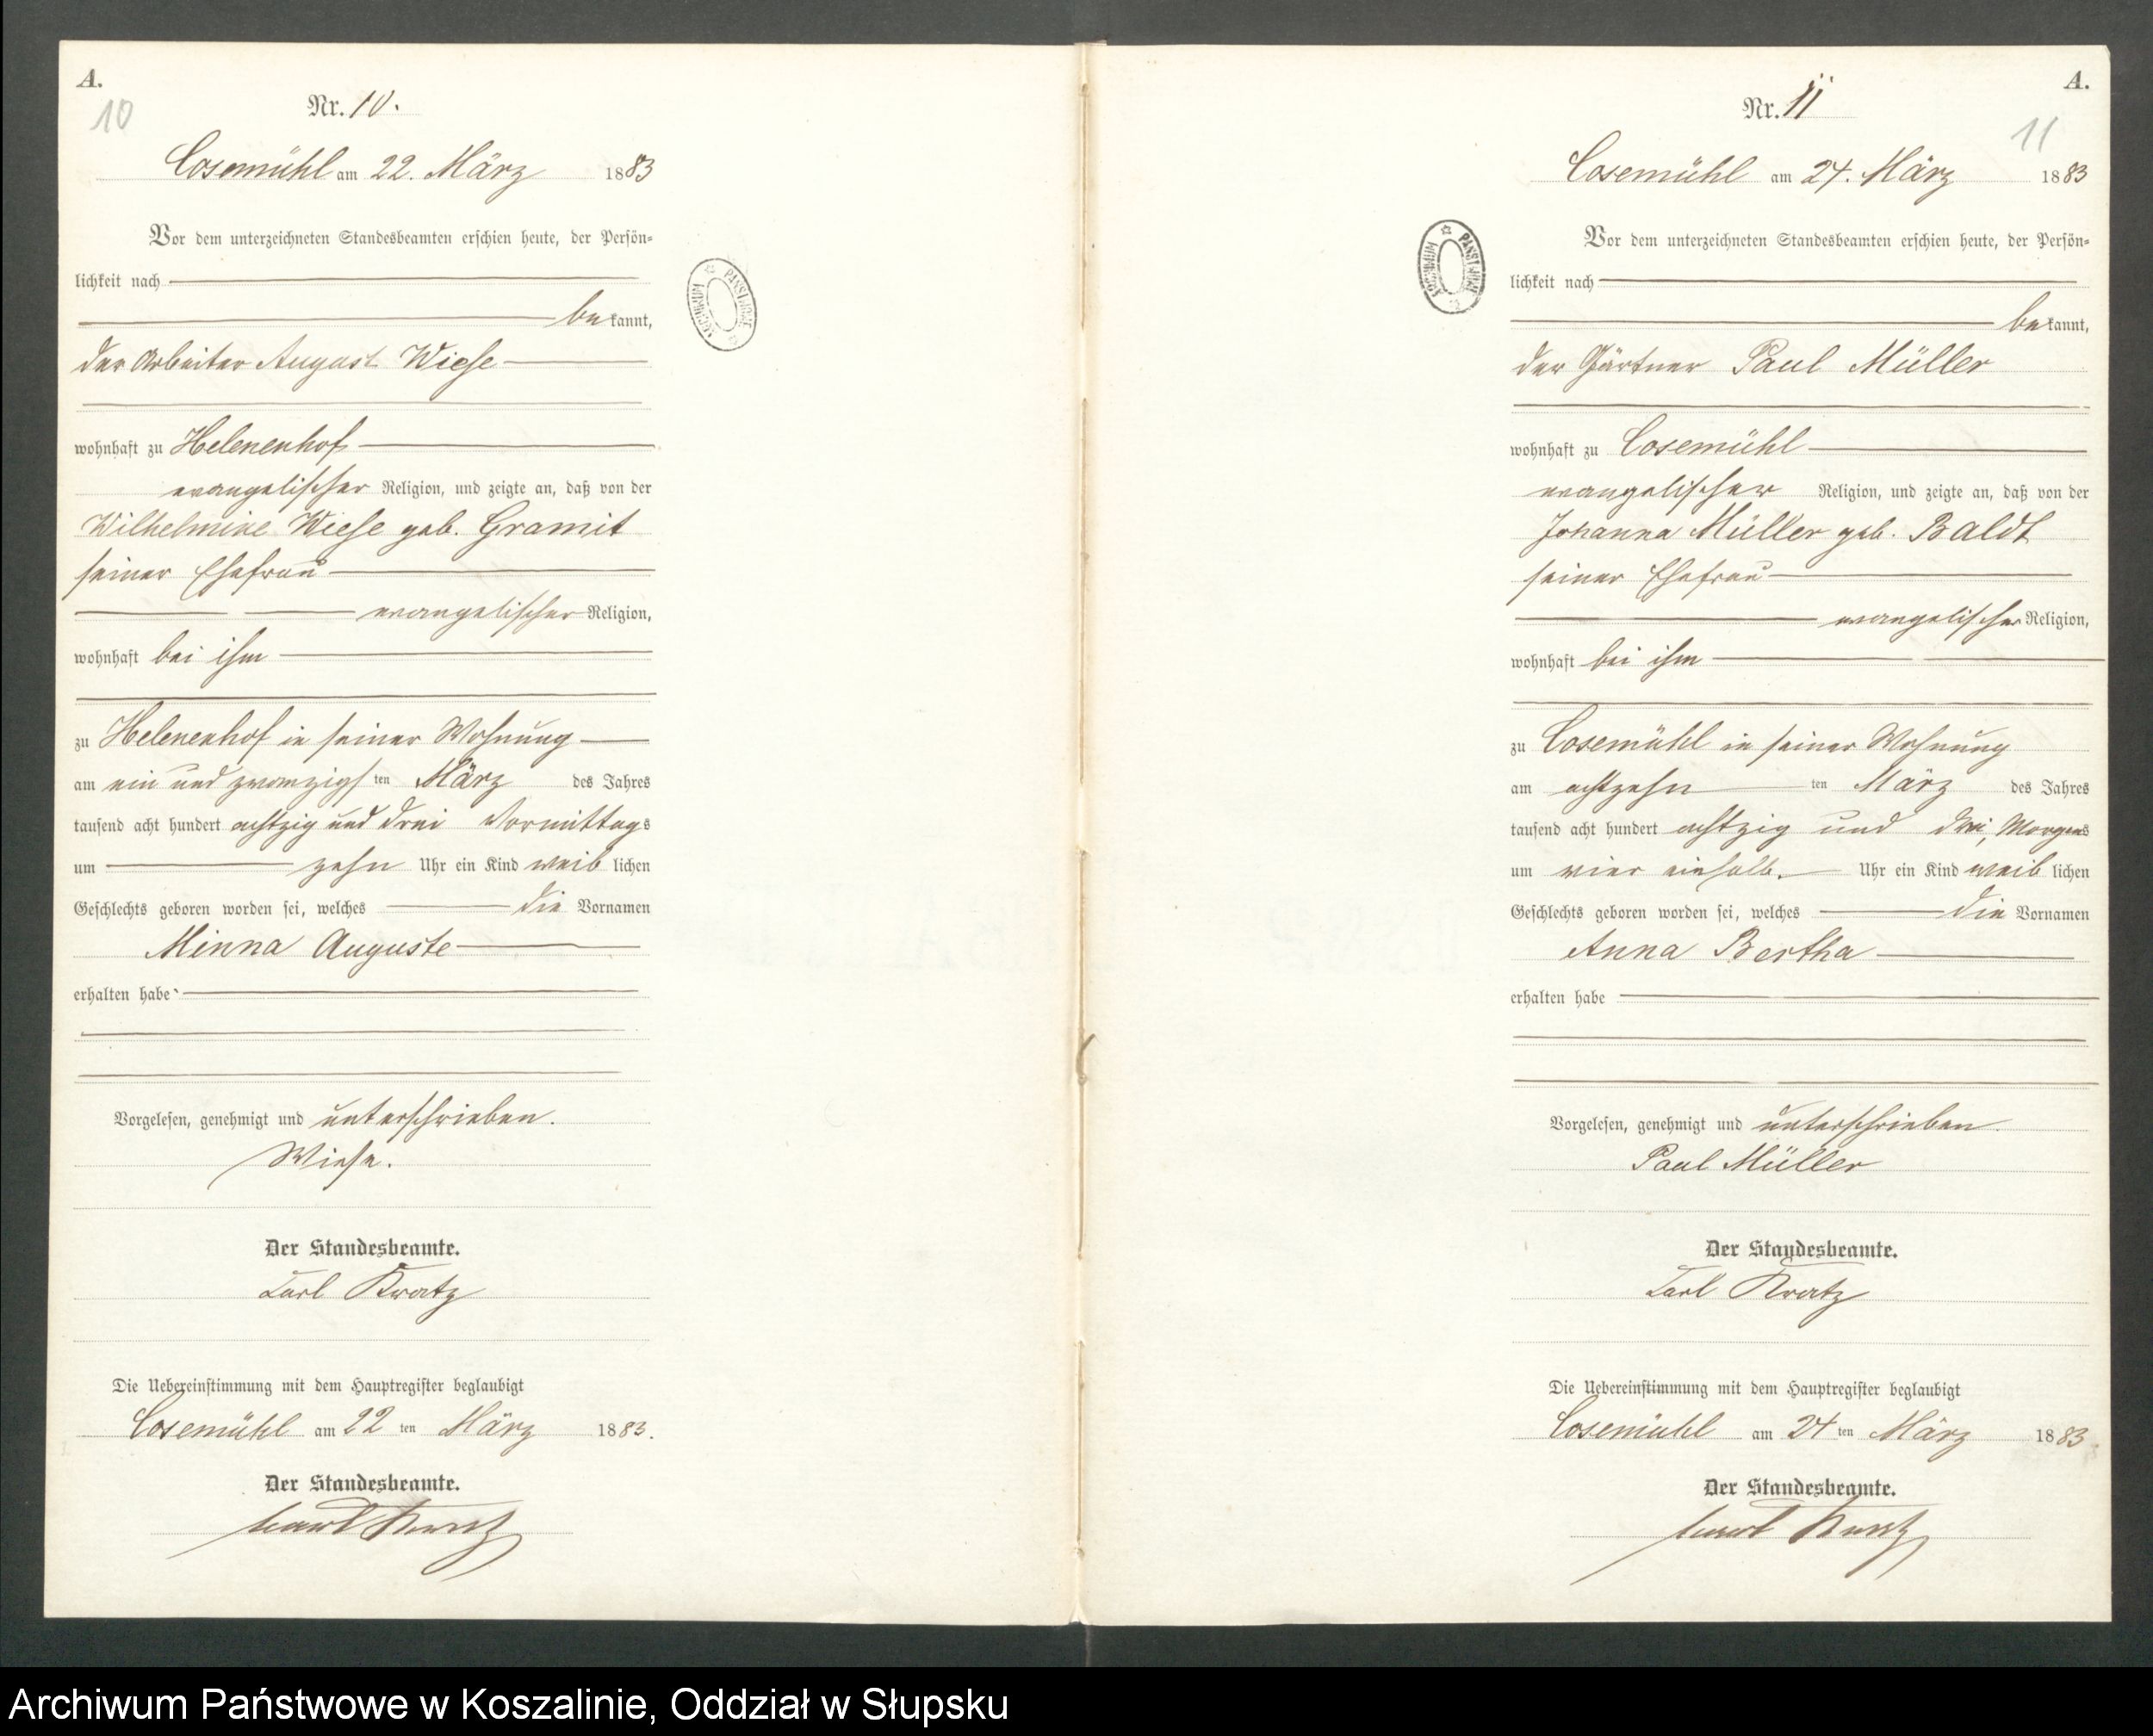 A.
10
Nr. 10.
Cosemühl am 22. März 1883
Vor dem unterzeichneten Standesbeamten erschien heute, der Persön-
lichkeit nach
bekannt,
der Arbeiter August Wiese
wohnhaft zu Helenenhof
evangelischer Religion, und zeigte an, daß von der
Wilhelmine Wiese geb. Gramit
seiner Ehefrau
evangelischer Religion,
wohnhaft bei ihm
zu Helenenhof in seiner Wohnung
am ein und zwanzigsten März des Jahres
tausend acht hundert achtzig und drei Vormittags
um zehn Uhr ein Kind weiblichen
Geschlechts geboren worden sei, welches die Vornamen
Minna Auguste
erhalten habe
Vorgelesen, genehmigt und unterschrieben.
Wiese.
Der Standesbeamte.
Carl Kratz
Die Uebereinstimmung mit dem Hauptregister beglaubigt
Cosemühl am 22 ten März 1883.
Der Standesbeamte.
Carl Kratz
ARCHIWUM PAŃSTWOWE
A.
11
Nr. 11
Cosemühl am 24. März 1883
Vor dem unterzeichneten Standesbeamten erschien heute, der Persön-
lichkeit nach
bekannt,
der Gärtner Paul Müller
wohnhaft zu Cosemühl
evangelischer Religion, und zeigte an, daß von der
Johanna Müller geb. Baldt
seiner Ehefrau
evangelischer Religion,
wohnhaft bei ihm
zu Cosemühl in seiner Wohnung
am achtzehn ten März des Jahres
tausend acht hundert achtzig und drei, Morgens
um vier einhalb. Uhr ein Kind weiblichen
Geschlechts geboren worden sei, welches die Vornamen
Anna Bertha
erhalten habe
Vorgelesen, genehmigt und unterschrieben.
Paul Müller
Der Standesbeamte.
Carl Kratz
Die Uebereinstimmung mit dem Hauptregister beglaubigt
Cosemühl am 24 ten März 1883.
Der Standesbeamte.
Carl Kratz
ARCHIWUM PAŃSTWOWE
Archiwum Państwowe w Koszalinie, Oddział w Słupsku